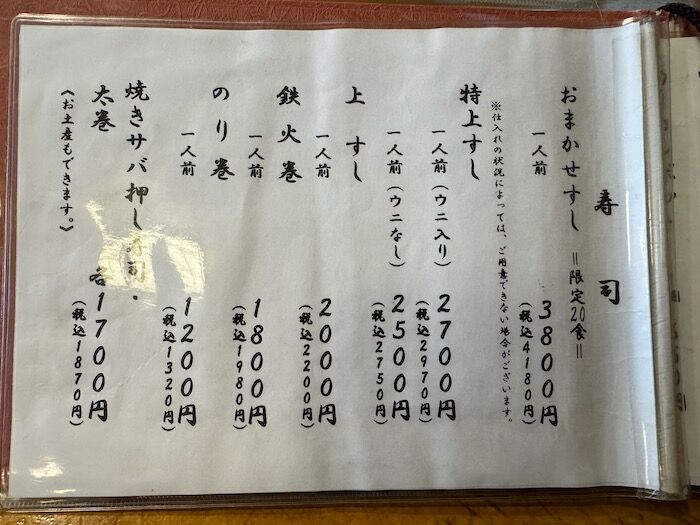 寿司
おまかせすし =限定20食=
一人前 3800円
(税込4180円)
※仕入れの状況によっては、ご用意できない場合がございます。
特上すし
一人前(ウニ入り) 2700円
(税込2970円)
一人前(ウニなし) 2500円
(税込2750円)
上すし
一人前 2000円
(税込2200円)
鉄火巻
一人前 1800円
(税込1980円)
のり巻
一人前 1200円
(税込1320円)
焼きサバ押し寿司・
太巻 各1700円
(税込1870円)
《お土産もできます。》